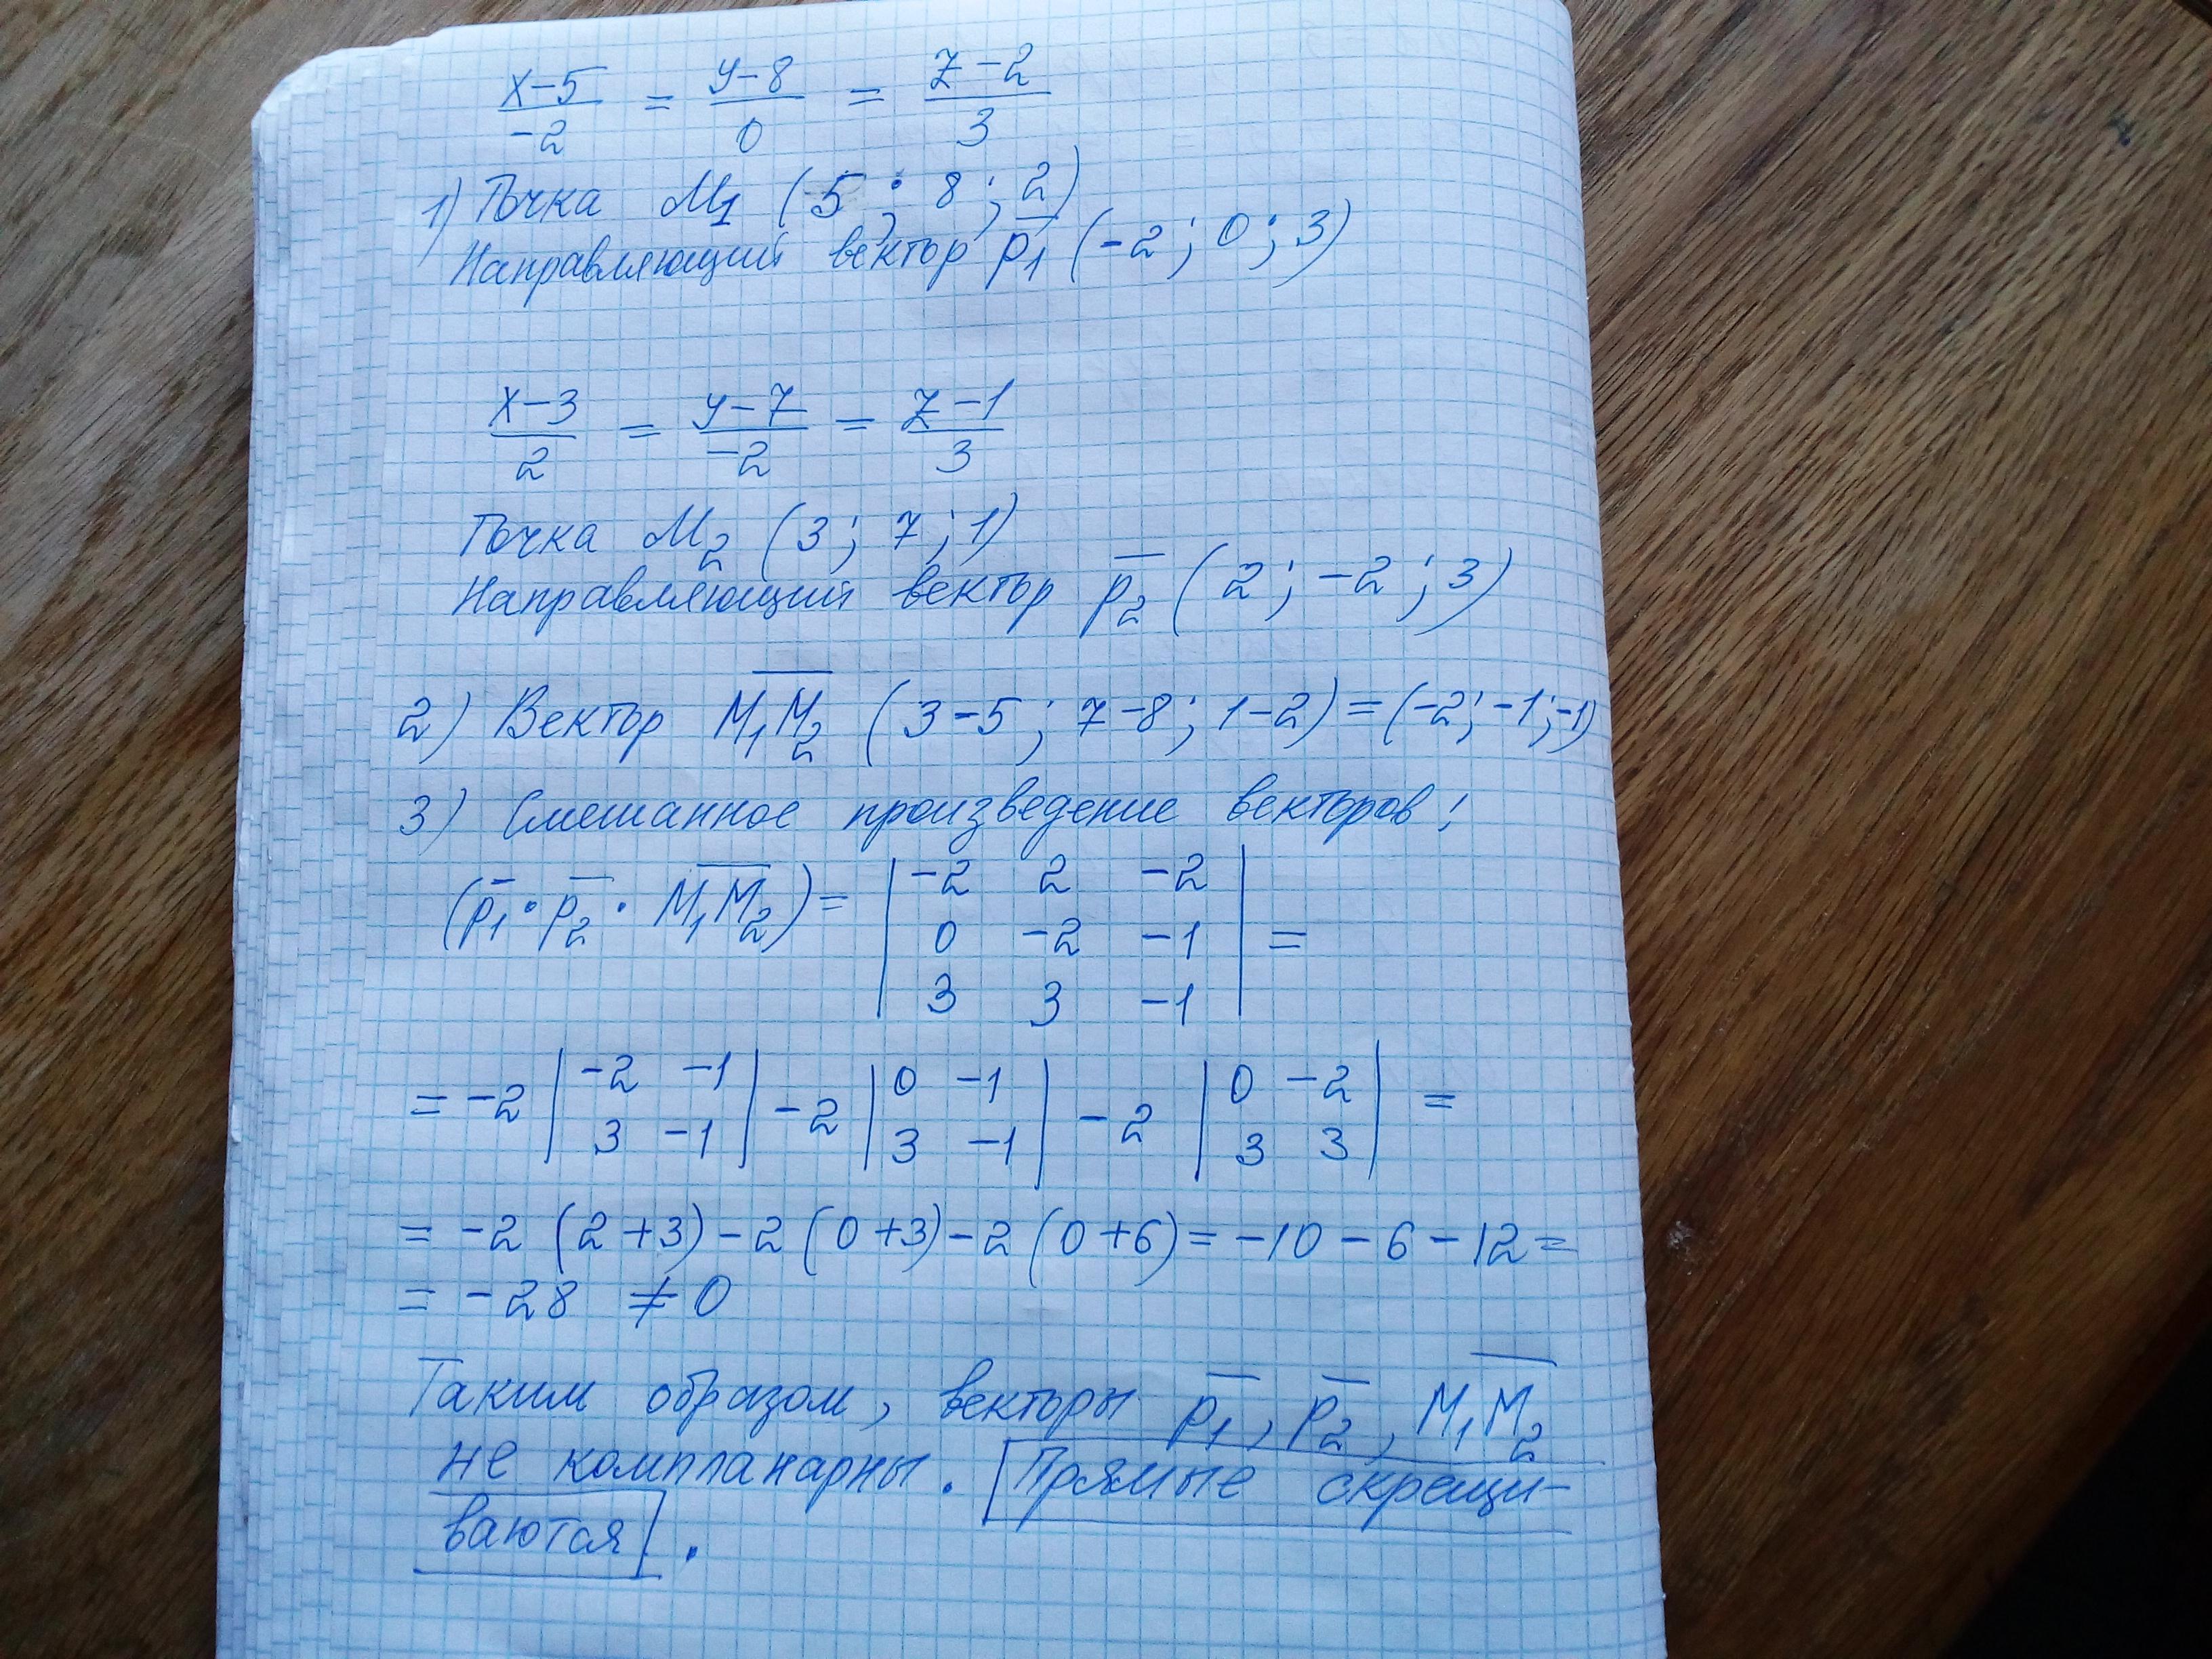 x-5/-2 = y-8/0 = z-2/3
1) Точка M1 (5; 8; 2)
Направляющий вектор p̅1 (-2; 0; 3)
x-3/2 = y-7/-2 = z-1/3
Точка M2 (3; 7; 1)
Направляющий вектор p̅2 (2; -2; 3)
2) Вектор M̅1M̅2 (3-5; 7-8; 1-2) = (-2; -1; -1)
3) Смешанное произведение векторов:
(p̅1 · p̅2 · M̅1M̅2) = | -2 2 -2 |
| 0 -2 -1 | =
| 3 3 -1 |
= -2 | -2 -1 | -2 | 0 -1 | -2 | 0 -2 | =
| 3 -1 | | 3 -1 | | 3 3 |
= -2 (2+3) -2 (0+3) -2 (0+6) = -10 - 6 - 12 =
= -28 ≠ 0
Таким образом, векторы p̅1, p̅2, M̅1M̅2
не компланарны. Прямые скрещи-
ваются.